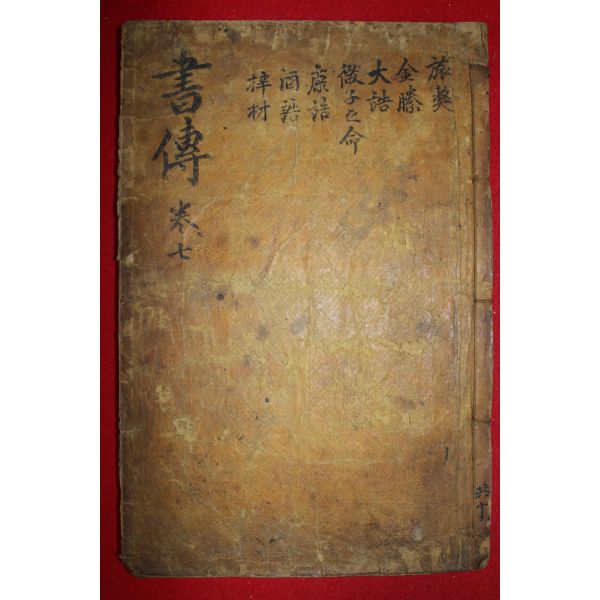 書傳
卷七
旅獒
金縢
大誥
微子之命
康誥
酒誥
梓材
共十